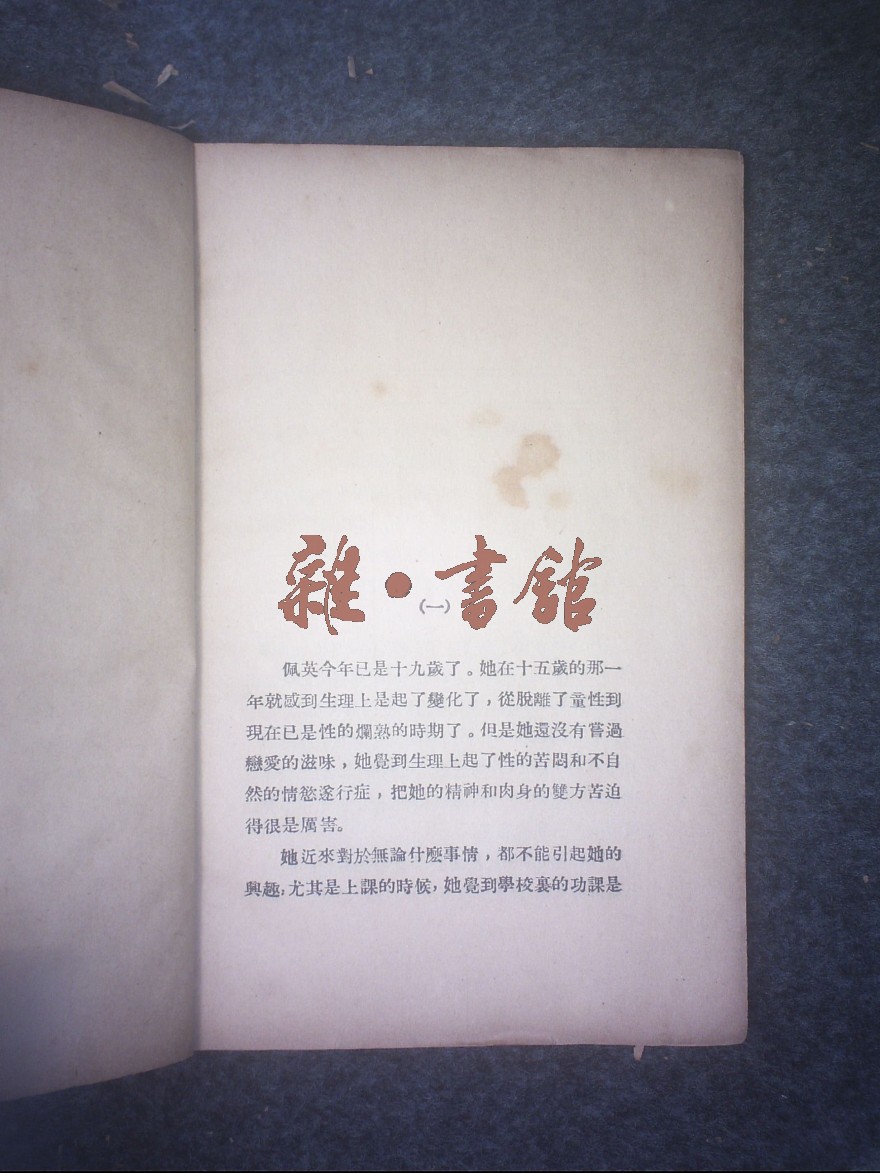 雜•書館
(一)
佩英今年已是十九歲了。她在十五歲的那一
年就感到生理上是起了變化了，從脫離了童性到
現在已是性的爛熟的時期了。但是她還沒有嘗過
戀愛的滋味，她覺到生理上起了性的苦悶和不自
然的情慾遂行症，把她的精神和肉身的雙方苦迫
得很是厲害。
她近來對於無論什麼事情，都不能引起她的
興趣，尤其是上課的時候，她覺到學校裏的功課是